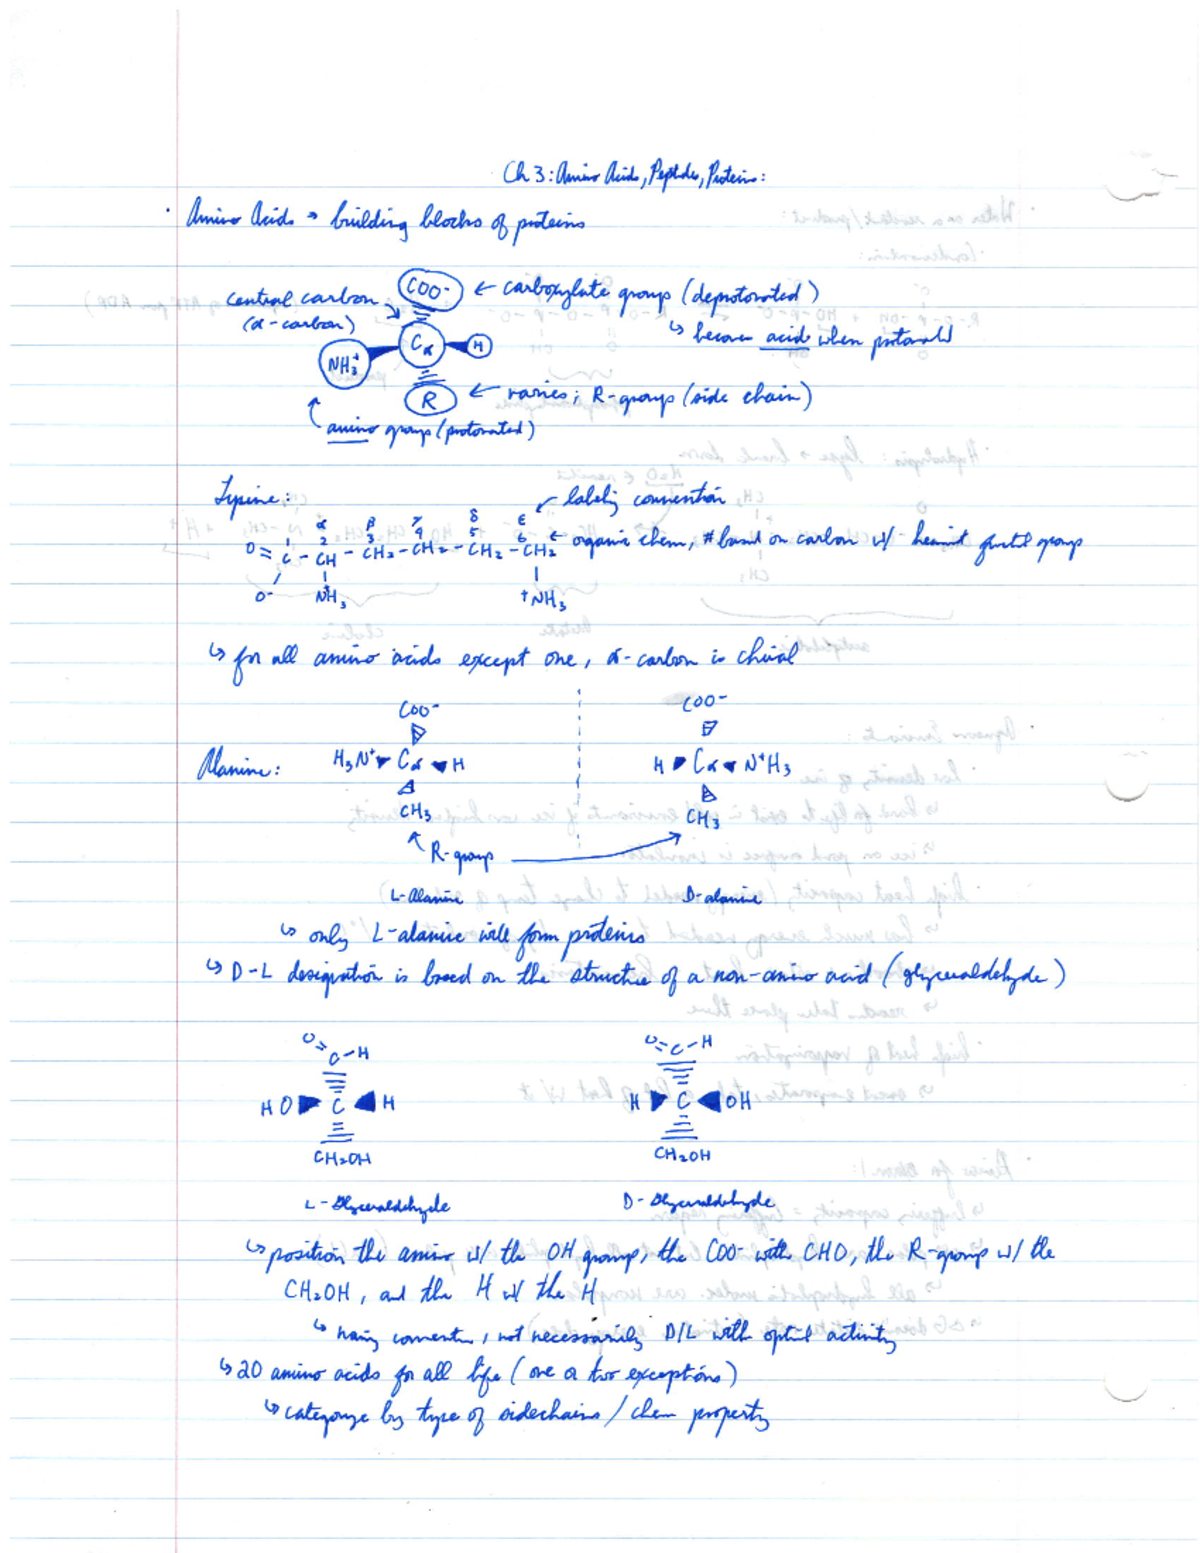 Ch 3: Amino Acids, Peptides, Proteins:
· Amino Acids → building blocks of proteins
COO- ← carboxylate group (deprotonated)
central carbon
(α-carbon)
↳ becomes acid when protonated
NH3+ Cα H
R ← varies; R-group (side chain)
amino group (protonated)
Lysine:
labeling convention
α β γ δ ε
2 3 4 5 6 ← organic chem, # based on carbon w/ heaviest group
O= C - CH - CH2 - CH2 - CH2 - CH2
O- +NH3 +NH3
↳ for all amino acids except one, α-carbon is chiral
COO- COO-
Alanine: H3N+ Cα H H Cα N+H3
CH3 CH3
R-group
L-Alanine D-alanine
↳ only L-alanine will form proteins
↳ D-L designation is based on the structure of a non-amino acid (glyceraldehyde)
O=C-H O=C-H
HO C H H C OH
CH2OH CH2OH
L-Glyceraldehyde D-Glyceraldehyde
↳ position the amino w/ the OH group, the COO- with CHO, the R-group w/ the
CH2OH, and the H w/ the H
↳ naming convention, not necessarily D/L with optical activity
↳ 20 amino acids for all life (one or two exceptions)
↳ categorize by type of sidechains / chem property